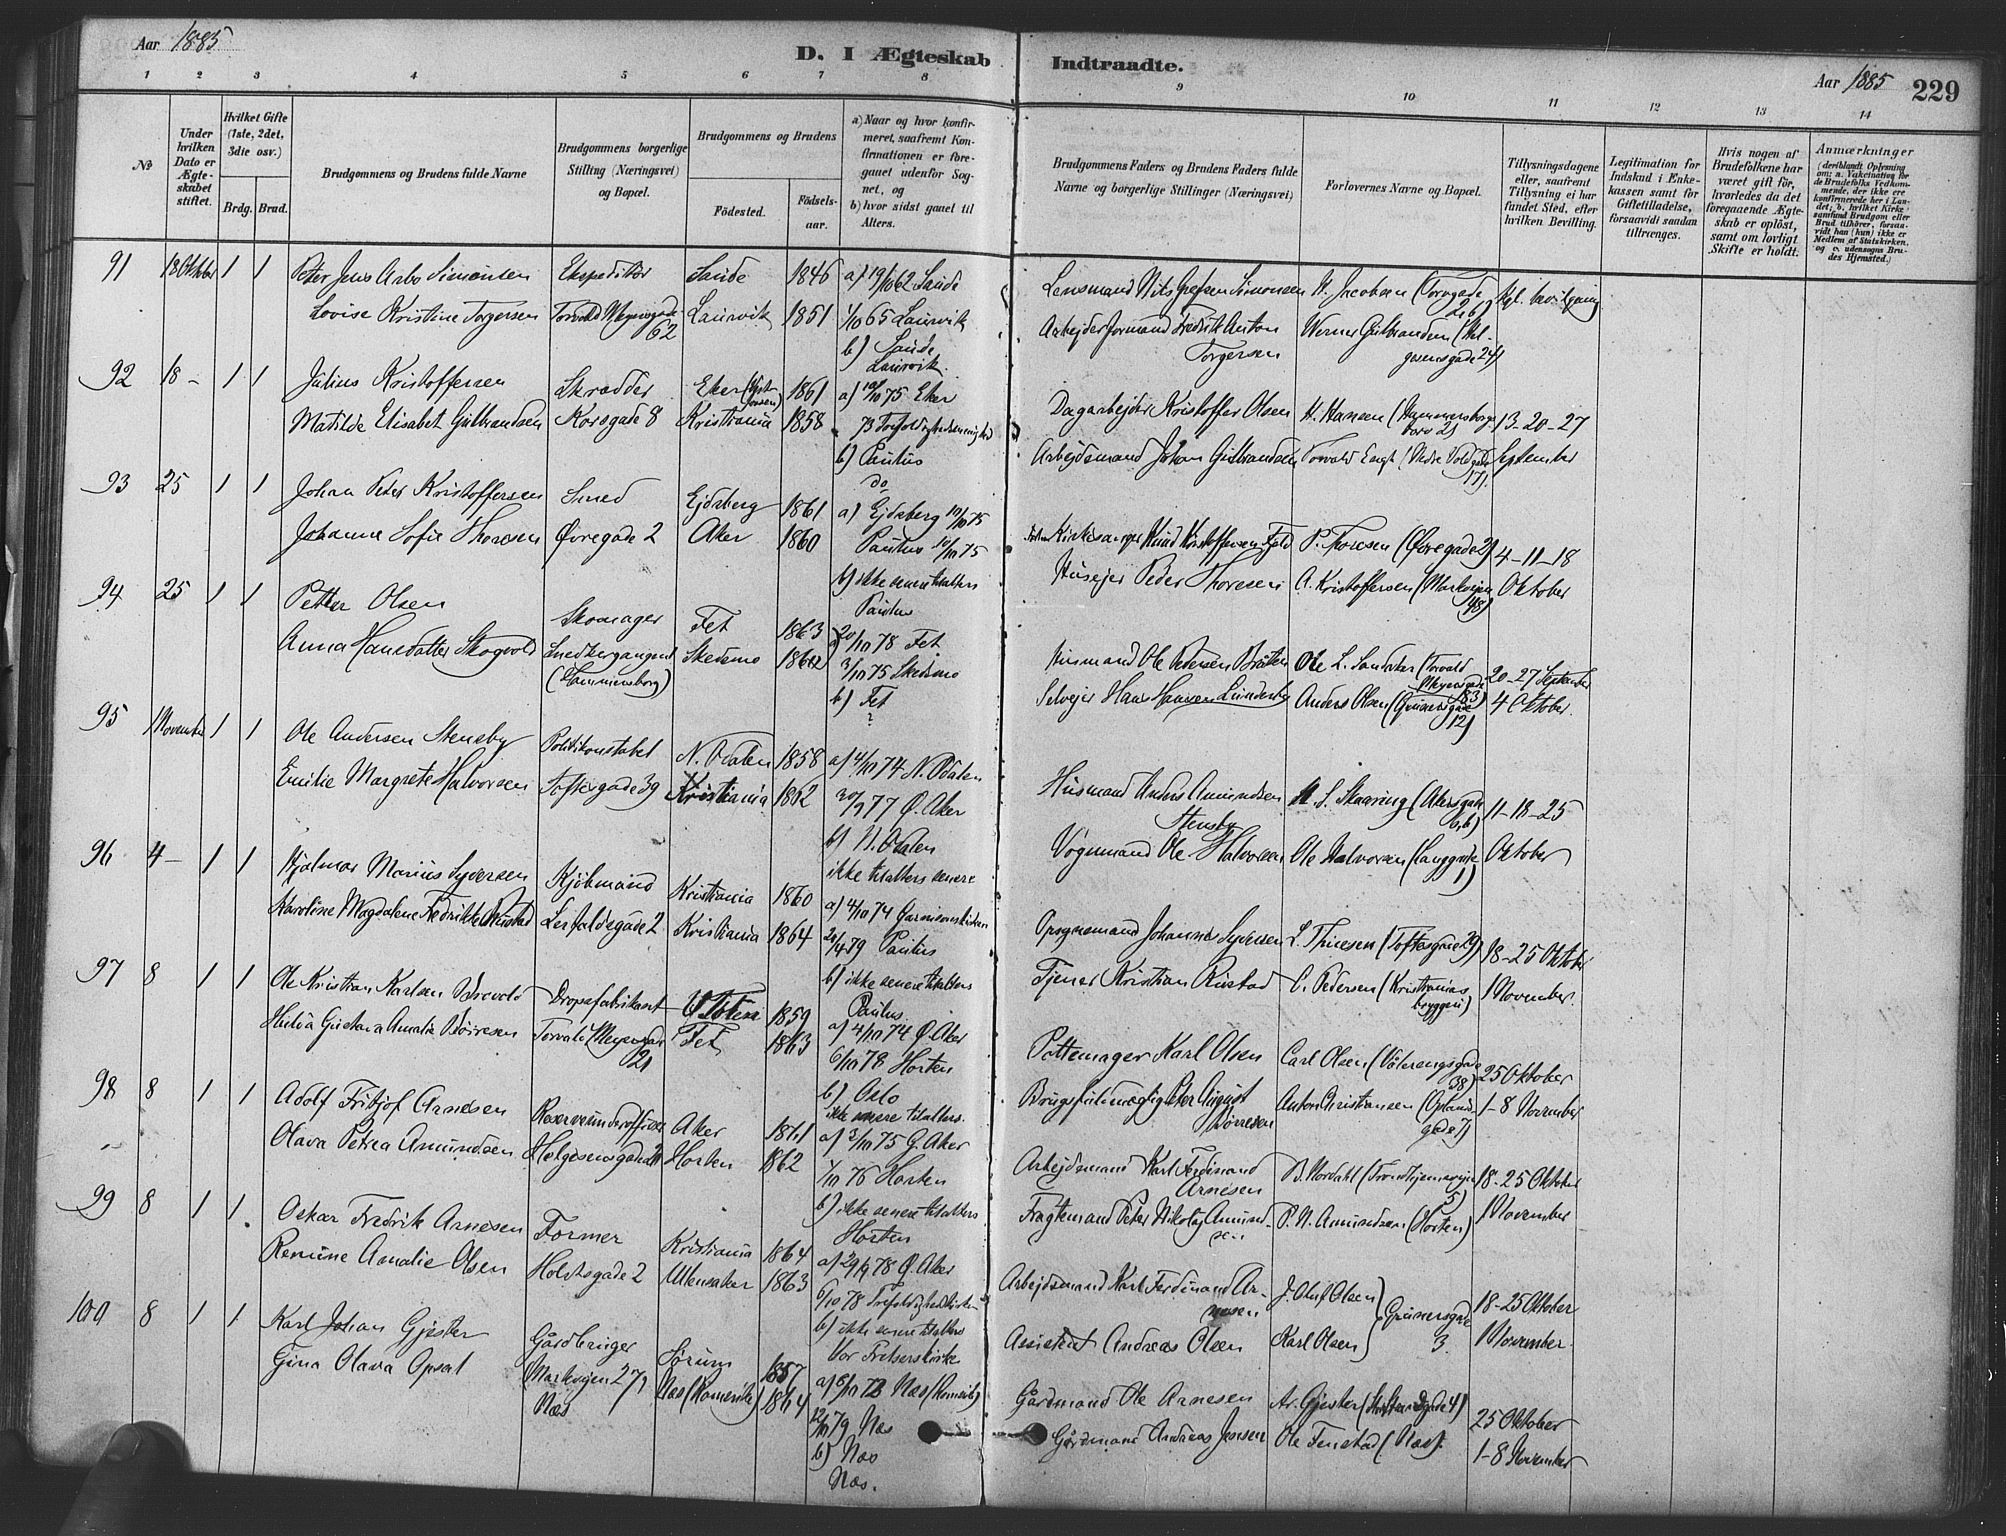 Aar 1885
D. I Ægteskab Indtraadte.
Aar 1885 229
1 2 3 4 5 6 7 8 9 10 11 12 13 14
No
Under hvilken Dato er Ægteskabet stiftet.
Hvilket Gifte (1ste, 2det, 3die osv.)
Brdg. Brud.
Brudgommens og Brudens fulde Navne
Brudgommens borgerlige Stilling (Næringsvei) og Bopæl.
Brudgommens og Brudens
Fødested.
Fødselsaar.
a) Naar og hvor konfirmeret, saafremt Konfirmationen er foregaaet udenfor Sognet, og
b) hvor sidst gaaet til Alters.
Brudgommens Faders og Brudens Faders fulde Navne og borgerlige Stillinger (Næringsvei)
Forlovernes Navne og Bopæl.
Tillysningsdagene eller, saafremt Tillysning ei har fundet Sted, efter hvilken Bevilling.
Legitimation for Indskud i Enkekassen samt for Giftetilladelse, forsaavidt saadan tiltrænges.
Hvis nogen af Brudefolkene har været gift før, hvorledes da det foregaaende Ægteskab er opløst, samt om lovligt Skifte er holdt.
Anmærkninger
(deriblandt Oplysning om: a. Vaccination for de Brudefolks Vedkommende, der ikke ere konfirmerede her i Landet; b. hvilket Kirkesamfund Brudgom eller Brud tilhører, forsaavidt han (hun) ikke er Medlem af Statskirken, og c. udensogns Brudes Hjemsted.)
91 18 Oktober 1 1 Peter Jens Arbo Simonsen Ekspeditør Sande 1846 a) 19/10 62 Sande Lensmand Nils Simonsen H. Jacobsen (Torvgade 26) kgl. bevilgning
Lovise Kristine Torgersen Torvald Meyersgade 62 Laurvik 1851 1/10 65 Laurvik Arbejderformand Fredrik Anton Torgersen Werner Gulbrandsen (Helgesensgade 24)
b) Sande
Laurvik.
92 18 - 1 1 Julius Kristoffersen Skrædder Eker 1861 a) 10/10 75 Eker Dagarbejder Kristoffer Olsen H. Hansen (Hammersborg 13-20-27
Matilde Elisabet Gulbrandsen Korsgade 8 Kristiania 1858 73 Trefoldighedsmenighed Arbejdsmand Johan Gulbrandsen Torvald Engh (Nedre Voldgade 17). September
b) Paulus
do
93 25 1 1 Johan Peter Kristoffersen Smed Ejdsberg 1861 a) Ejdsberg 10/10 75 Kirkesanger Knud Kristoffersen Fjeld P. Thoresen (Øvregade 2) 4-11-18
Johanne Sofie Thoresen Øvregade 2 Aker 1860 Paulus 10/10 75 Husejer Peder Thoresen A. Kristoffersen (Markvejen 48) Oktober
b) ikke senere tilalters
Paulus
94 25 1 1 Petter Olsen Skomager Fet 1863 a) 20/10 78 Fet Husmand Ole Pedersen Bråten Ole L. Sandaker (Torvald Meyersgade 83) 20-27 September
Anna Hansdatter Skogvold Smedbergangen 1 (Hammersborg) Skedsmo 1860 3/10 75 Skedsmo Selvejer Hans Hansen Lundesby Anders Olsen (Grünersgade 12) 4 Oktober.
b) Fet
?
95 1 November 1 1 Ole Andersen Stensby Politikonstabel N. Odalen 1858 a) 4/10 74 N. Odalen Husmand Anders Amundsen Stensby M. S. Skaaring (Akersgade 6,b) 11-18-25
Emilie Margrete Halvorsen Toftesgade 39 Kristiania 1862 30/9 77 Ø. Aker Vognmand Ole Halvorsen Ole Halvorsen (Langgade 1) Oktober
b) N. Odalen
ikke tilalters senere
96 4 - 1 1 Hjalmar Marius Syversen Kjøbmand Kristiania 1860 a) 4/10 74 Garnisonskirken Opsynsmand Johannes Syversen L. Thuesen (Toftesgade 29) 18-25 Oktober
Karoline Magdalene Fredrikke Rustad Lerfaldsgade 2 Kristiania 1864 20/4 79 Paulus Tjener Kristian Rustad C. Pedersen (Kristianias bryggeri) 1 November.
b) ikke senere tilalters
Paulus.
97 8 1 1 Ole Kristian Karlsen Dropsfabrikant V. Toten 1859 a) 4/10 74 Ø. Aker Pottemager Karl Olsen Carl Olsen (Vålerengsgade 38) 25 Oktober
Hulda Gustava Amalie Børresen Torvald Meyersgade 21 Fet 1863 6/10 78 Horten Brugsfuldmægtig Peter August Børresen Anton Christiansen (Oplandsgade 7) 1-8 November
b) Oslo
ikke senere tilalters.
98 8 1 1 Adolf Fritjof Arnesen Reserveunderofficer Aker 1861 a) 3/10 75 G. Aker Arbejdsmand Karl Ferdinand Arnesen B. Nordahl (Trondhjemsvejen 5) 18-25 Oktober
Olava Petrea Amundsen Helgesensgade 21 Horten 1862 1/10 76 Horten Fragtemand Peter Nikolaj Amundsen P. N. Amundsen (Horten) 1 November
b) ikke senere tilalters
Horten
99 8 1 1 Oskar Fredrik Arnesen Former Kristiania 1864 a) 29/9 78 Ø. Aker Arbejdsmand Karl Ferdinand Arnesen J. Oluf Olsen } Grünersgade 3. 18-25 Oktober
Remine Amalie Olsen Holstsgade 2 Ullensaker 1863 6/10 78 Trefoldighedskirken Assistent Andreas Olsen Karl Olsen 1 November.
b) ikke senere tilalters
Vor Frelsers kirke
100 8 1 1 Karl Johan Gjester Gårdbruger Sørum 1857 a) 6/10 72 Næs (Romerike) Gårdmand Ole Arnesen Ar. Gjester 25 Oktober
Gina Olava Opsal Markvejen 27, Næs Næs (Romerike) 1864 12/10 79 Næs Gårdmand Andreas Jensen Ole Fenstad (Næs). 1-8 November
b) Næs
Næs.